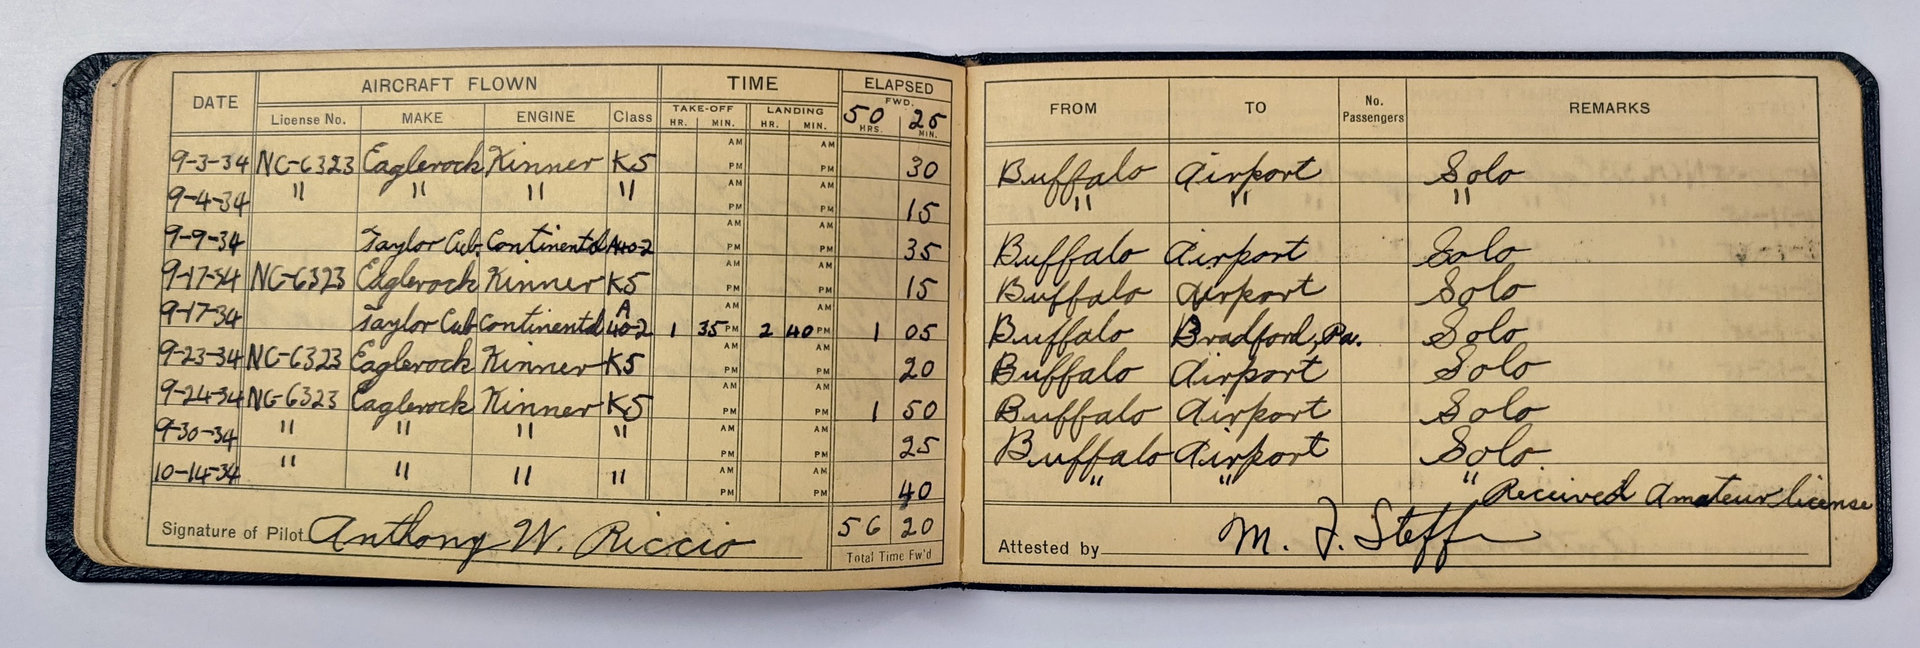 DATE AIRCRAFT FLOWN TIME ELAPSED
License No. MAKE ENGINE Class TAKE-OFF LANDING FWD.
HR. MIN. HR. MIN. 50 HRS. 25 MIN.
9-3-34 NC-6323 Eaglerock Kinner K5 AM PM AM PM 30
9-4-34 " " " " AM PM AM PM 15
9-9-34 Taylor Cub Continental A40-2 AM PM AM PM 35
9-17-34 NC-6323 Eaglerock Kinner K5 AM PM AM PM 15
9-17-34 Taylor Cub Continental A40-2 AM 1 35 PM AM 2 40 PM 1 05
9-23-34 NC-6323 Eaglerock Kinner K5 AM PM AM PM 20
9-24-34 NC-6323 Eaglerock Kinner K5 AM PM AM PM 1 50
9-30-34 " " " " AM PM AM PM 25
10-14-34 " " " " AM PM AM PM 40
Signature of Pilot Anthony W. Riccio 56 20
Total Time Fw'd
FROM TO No. Passengers REMARKS
Buffalo Airport Solo
" " "
Buffalo Airport Solo
Buffalo Airport Solo
Buffalo Bradford, Pa. Solo
Buffalo Airport Solo
Buffalo Airport Solo
Buffalo Airport Solo.
" " " Received Amateur license
Attested by M. J. Steff